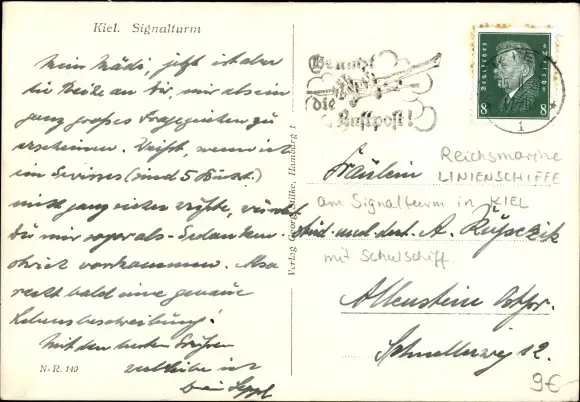 Kiel. Signalturm
Mein Mädi, jetzt ist aber
die Reihe an Dir, mir als ein
ganz großes Fragezeichen zu
erscheinen. Weißt, wenn ich
im Gewissen (sind 5 Buchst.)
nicht ganz sicher wüßte,
Du mir sogar als Gedanken-
vorkommen. Also
recht bald eine genaue
Lebensbeschreibung!
Mit den besten Grüßen
verbleibe ich
Dein Seppl
N.-R. 149
Verlag Georg Stilke, Hamburg 1
Benutzt
die
Luftpost!
Deutsches Reich
8 8
1
Fräulein
Reichsmarine
LINIENSCHIFFE
am Signalturm in KIEL
stud. med. dent. A.
mit Schulschiff.
Allenstein Ostpr.
12.
9€